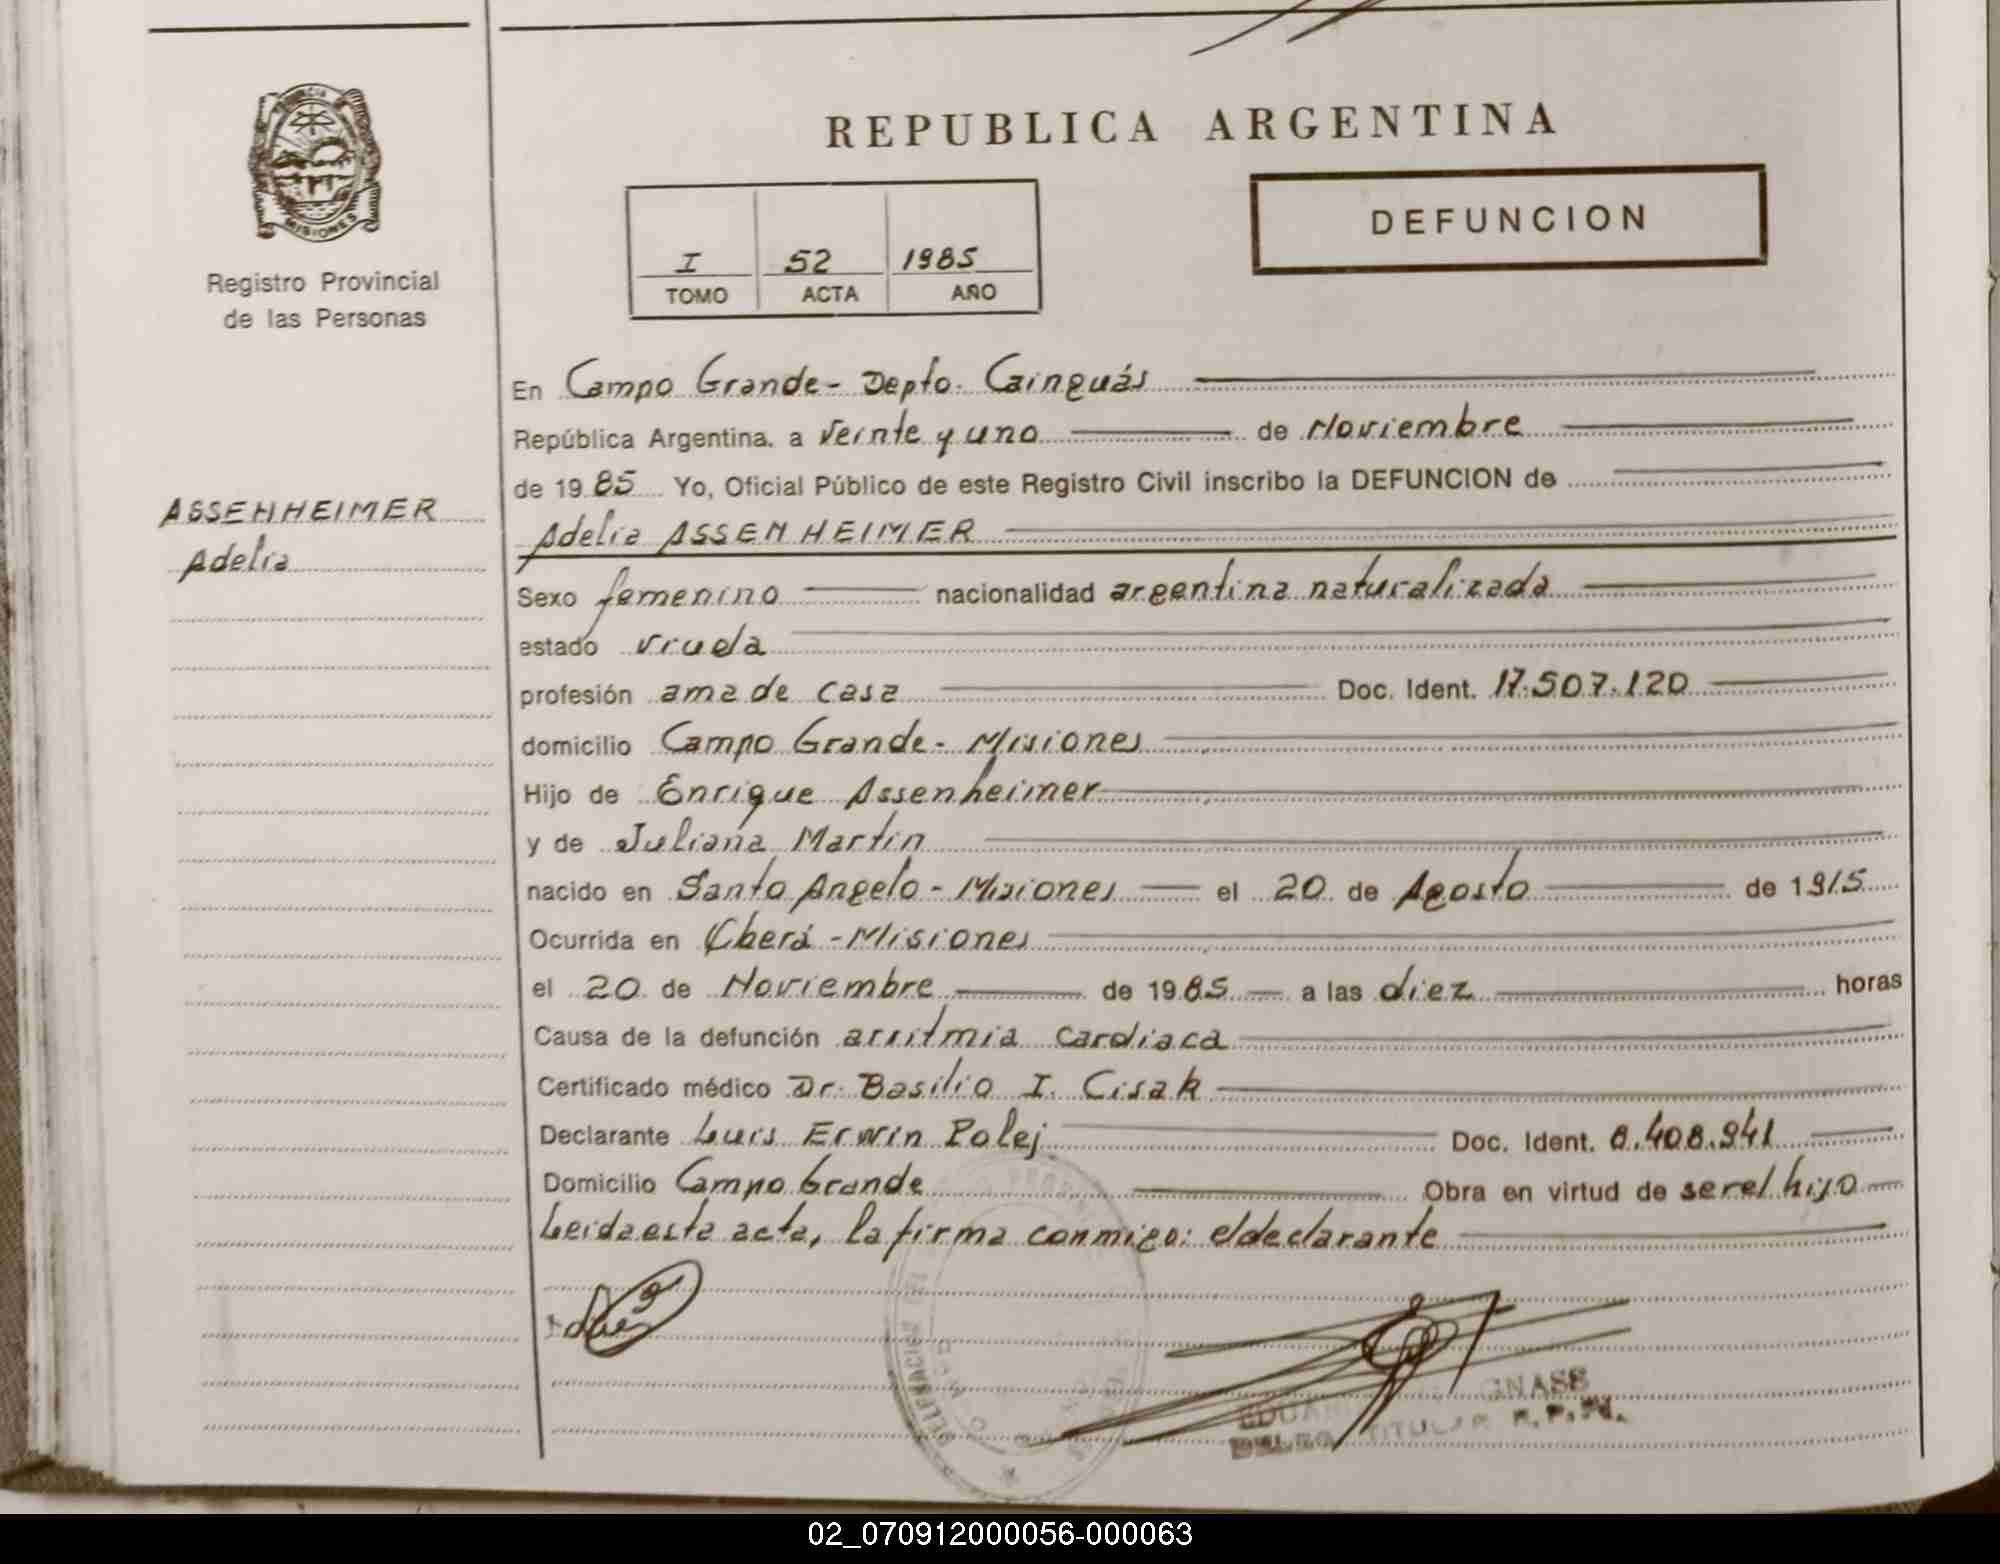 REPUBLICA ARGENTINA
MISIONES
Registro Provincial
de las Personas
I 52 1985
TOMO ACTA AÑO
DEFUNCION
ASSENHEIMER
Adelia
En Campo Grande- Depto. Cainguás
República Argentina, a Veinte y uno de Noviembre
de 1985 Yo, Oficial Público de este Registro Civil inscribo la DEFUNCION de
Adelia ASSENHEIMER
Sexo femenino nacionalidad argentina naturalizada
estado viuda
profesión ama de casa Doc. Ident. 17.507.120
domicilio Campo Grande- Misiones
Hijo de Enrique Assenheimer
y de Juliana Martin
nacido en Santo Angelo - Misiones el 20 de Agosto de 1915
Ocurrida en - Misiones
el 20 de Noviembre de 1985 a las diez horas
Causa de la defunción arritmia cardiaca
Certificado médico Dr. Basilio I. Cisak
Declarante Luis Erwin Polej Doc. Ident. 8.408.941
Domicilio Campo Grande Obra en virtud de ser el hijo
Leida esta acta, la firma conmigo: el declarante
TITULAR R.P.P.
02_070912000056-000063